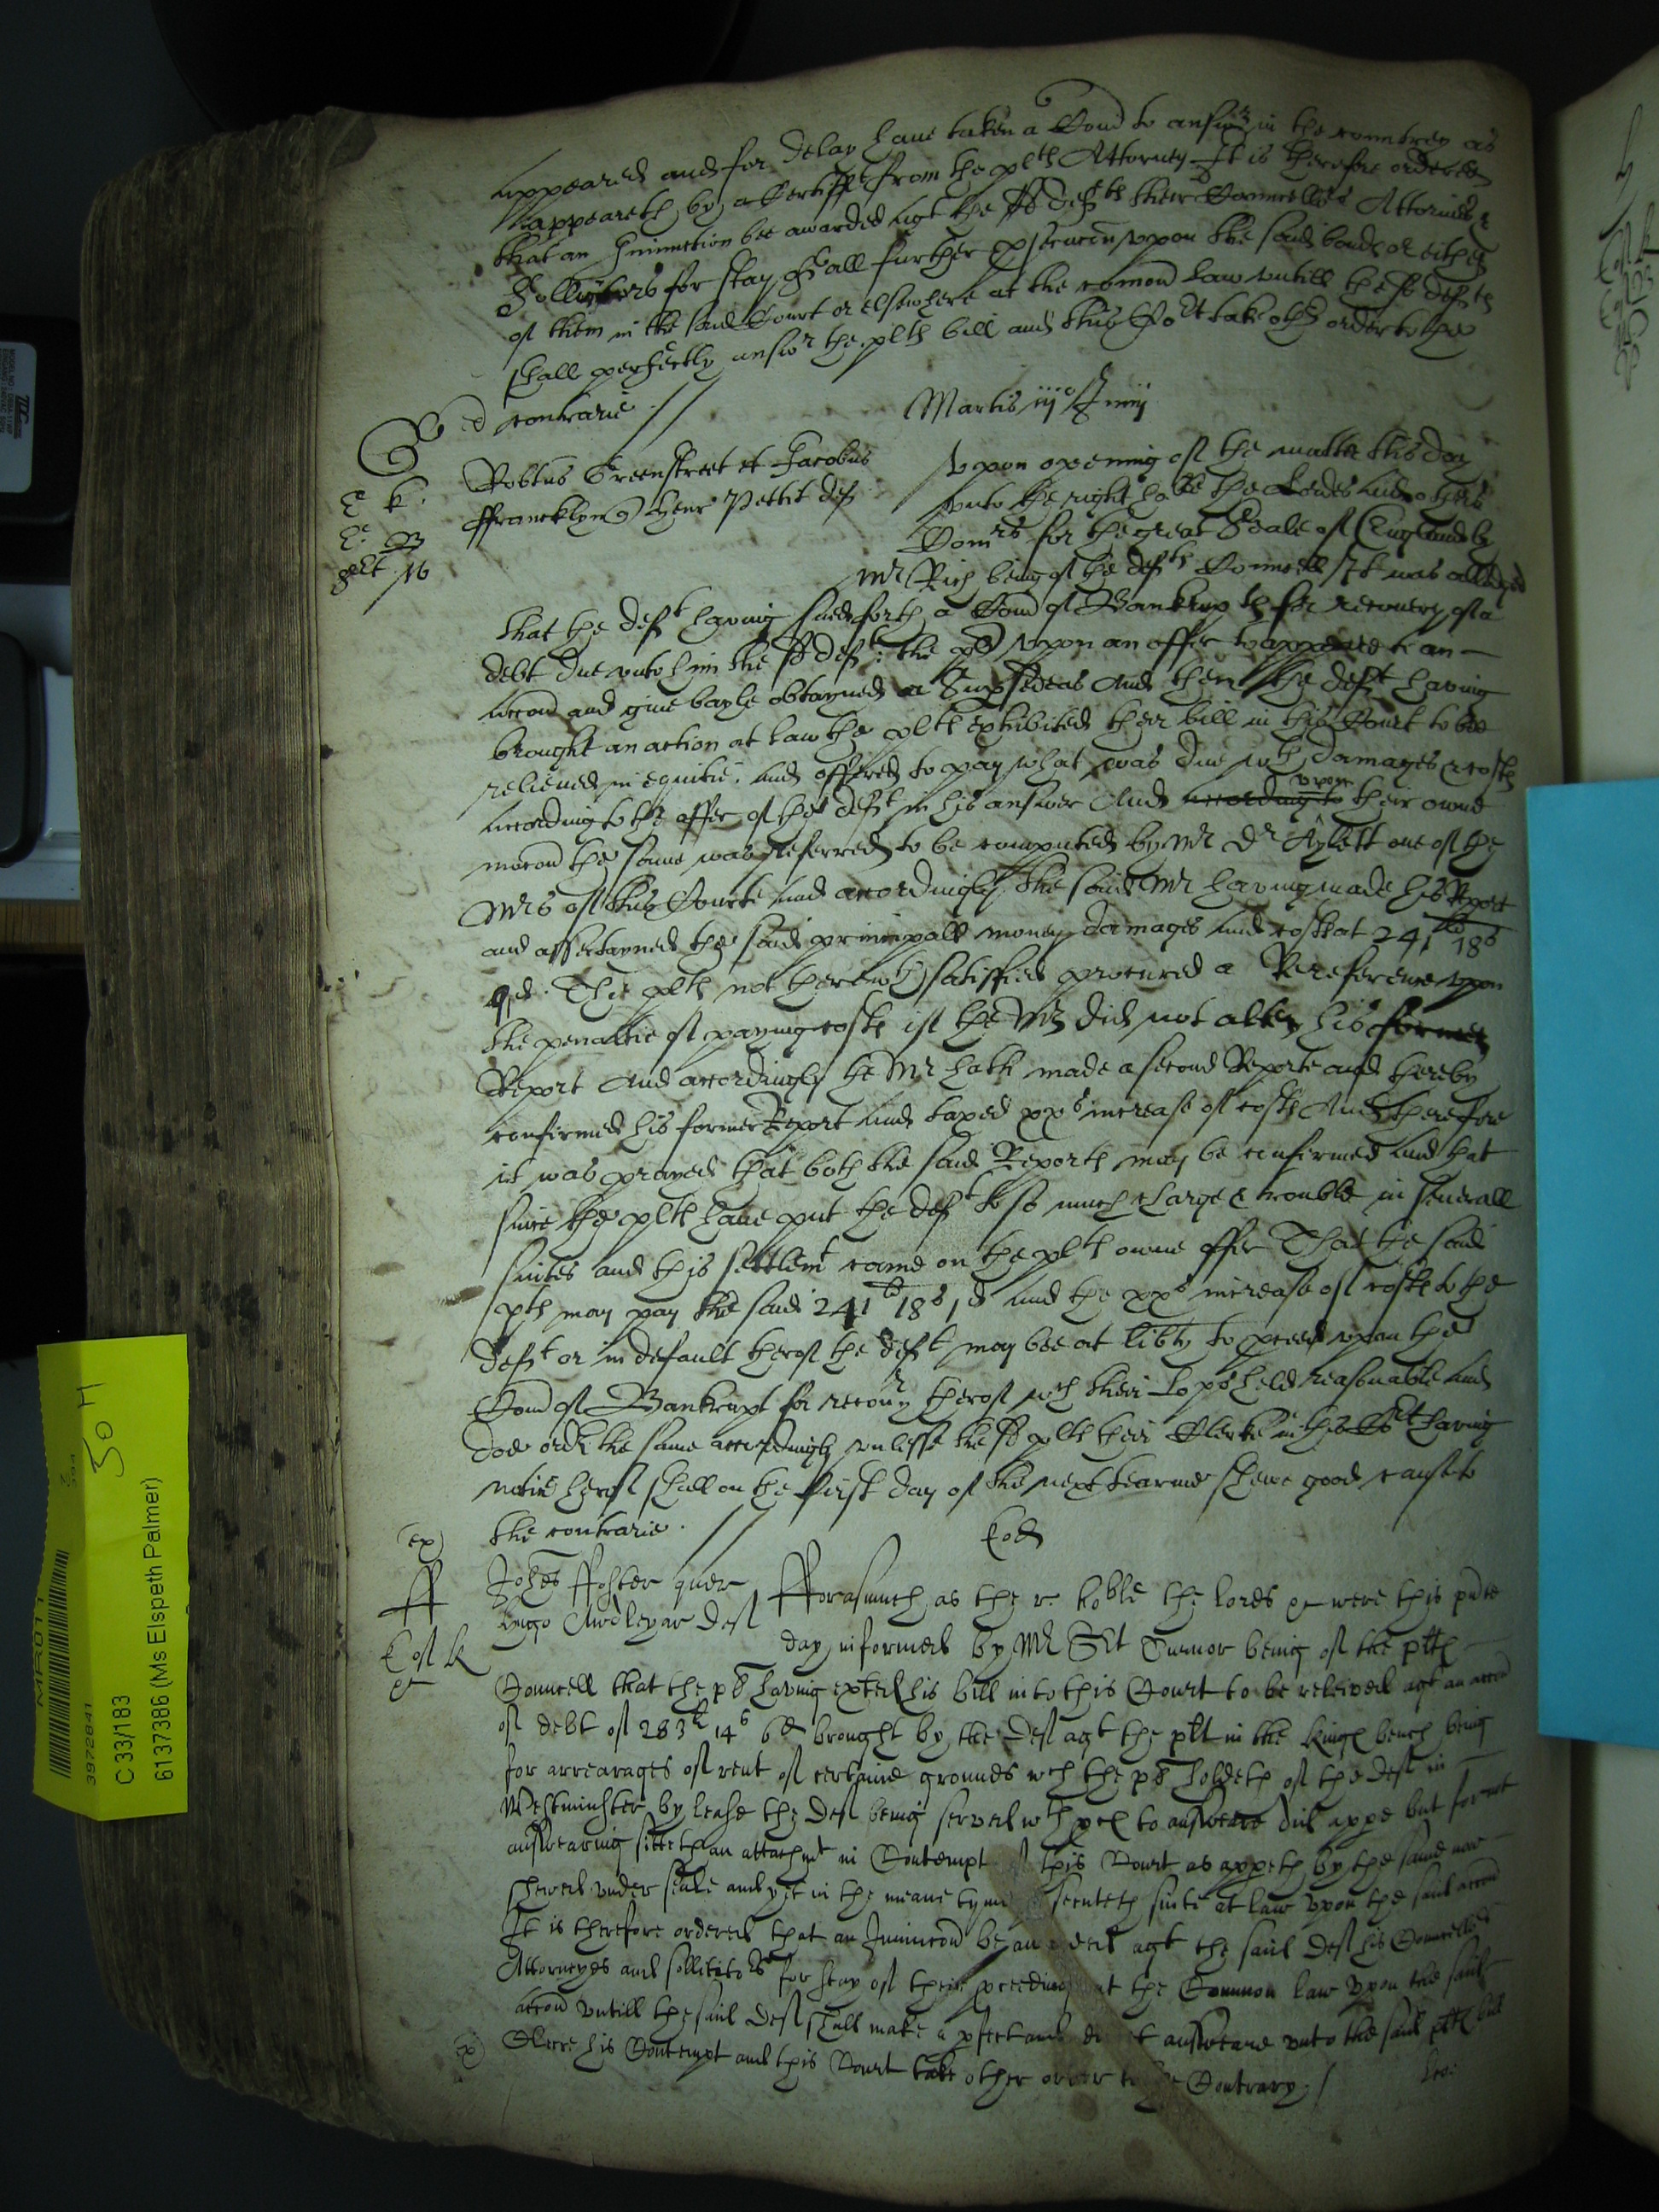 appeared and for delay have taken a Comon to answer in the countrey as
appeareth by a Certifft from the plts Attorney It is therefore ordered
that an Iniunction bee awarded agt the sd defts their Councellors Attornies &
Sollicitors for stay of all further psecucon upon the said bonds or either
of them in the said Court or elsewhere at the comon Law untill the sd defts
shall perfectly answr the plts bill and this Cort take othr order to the
contrarie //
Martis iijo Junij
Robtus Greenstreet et Jacobus
ffrancklyn Henr Pettit def
Upon opening of the matter this day
unto the right hoble the Lordes and others
Comrs for the great Seale of England by
Mr Rich being of the defts Councell It was alledged
that the deft having sued forth a Comon of Bankrupts for recovery of a
debt due unto him the sd deft: the pl upon an offer to appeare to an
accon and give bayle obtayned a Supsedeas And then the deft having
brought an action at Law the plts exhibited their bill in this Court to bee
relieved in equitie: and offered to pay what was due wth damages & costs
according to the offer of the deft in his answer And according to upon their owne
mocon the same was referred to be computed by Mr Dr Aylett one of the
Mrs of this Courte and accordingly the said Mr having made his Report
and assertayned the said principall money damages and cost at 241li 18s
1d. The plts not therewth satisfied procured a Rereference upon
the penaltie of paying costs if the Mr did not alter his former
Report And accordingly the Mr hath made a second Reporte and thereby
confirmed his former Report and taxed xxs increase of costs And therefore
it was prayed that both the said Reports may be confirmed and that
since the plts have put the deft to so much charge & trouble in severall
suites and this settlemt came on the plts owne offer That the said
plts may pay the said 241li 18s 1d and the xxs increase of costs to the
deft or in default therof the deft may bee at libty to pceed upon the
Comon of Bankrupt for recovry therof wch their Lopps held reasonable and
doe ordr the same accordingly unlesse the sd plts their Clerke in this Cort having
notice hereof shall on the first day of the next tearme shewe good cause to
the contrarie. //
Eod
Johes ffoster quer
Hugo Awdleyar def
fforasmuch as the r. hoble the lords &c were this pnte
day informed by Mr Sit Turnor being of the plts
Councell that the pl having exted his bill into this Court to be releived agt an accon
of debt of 283li 14s 6d brought by the def agt the plt in the kings bench being
for arrearages of rent of certaine grounds wch the pl holdeth of the def in
Westminster by lease the def being served wth pces to answeare did appe but for not
answearing sitteth an attachmt in Contempt of this Court as appeth by the same now
shewed under seale and yet in the meane tyme psecuteth suite at law upon the said accon
It is therefore ordered that an Iniuncon be awarded agt the said def his Councellrs
Attorneyes and sollicitors for stay of their pceedings at the Common law upon the said
accon untill the said def shall make a pfect and dirct answeare unto the said plts bill
Cleere his Contempt and this Court take other order to the Contrary. /
MR011
3972841
C 33/183
6137386 (Ms Elspeth Palmer)
30 H